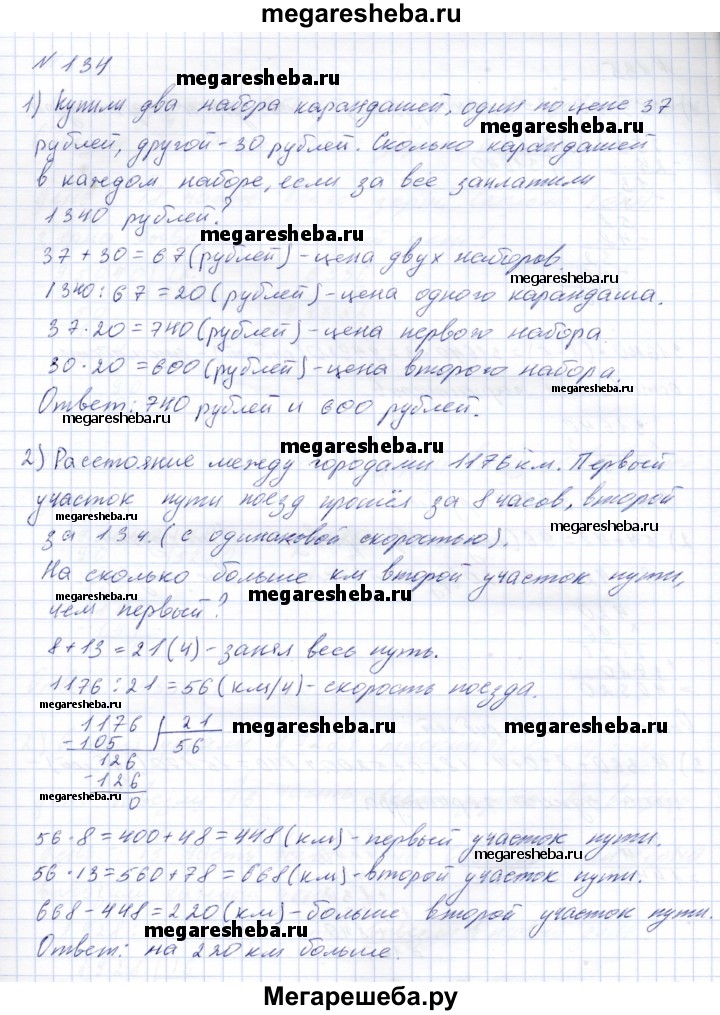 megaresheba.ru
N 134
megaresheba.ru
1) Купили два набора карандашей, один по цене 37
megaresheba.ru
рублей, другой - 30 рублей. Сколько карандашей
в каждом наборе, если за все заплатили
1340 рублей?
megaresheba.ru
37 + 30 = 67 (рублей) - цена двух наборов.
megaresheba.ru
1340 : 67 = 20 (рублей) - цена одного карандаша.
37 · 20 = 740 (рублей) - цена первого набора.
30 · 20 = 600 (рублей) - цена второго набора.
megaresheba.ru
Ответ: 740 рублей и 600 рублей.
megaresheba.ru
megaresheba.ru
2) Расстояние между городами 1176 км. Первый
участок пути поезд прошёл за 8 часов, второй
megaresheba.ru
megaresheba.ru
за 13ч. (с одинаковой скоростью).
На сколько больше км второй участок пути,
megaresheba.ru
чем первый?
8 + 13 = 21 (ч) - занял весь путь.
1176 : 21 = 56 (км/ч) - скорость поезда.
megaresheba.ru
1176 21
megaresheba.ru
megaresheba.ru
-105 56
126
-126
megaresheba.ru
0
56 · 8 = 400 + 48 = 448 (км) - первый участок пути.
megaresheba.ru
56 · 13 = 560 + 78 = 668 (км) - второй участок пути.
668 - 448 = 220 (км) - больше второй участок пути.
megaresheba.ru
Ответ: на 220 км больше.
Мегарешеба.ру